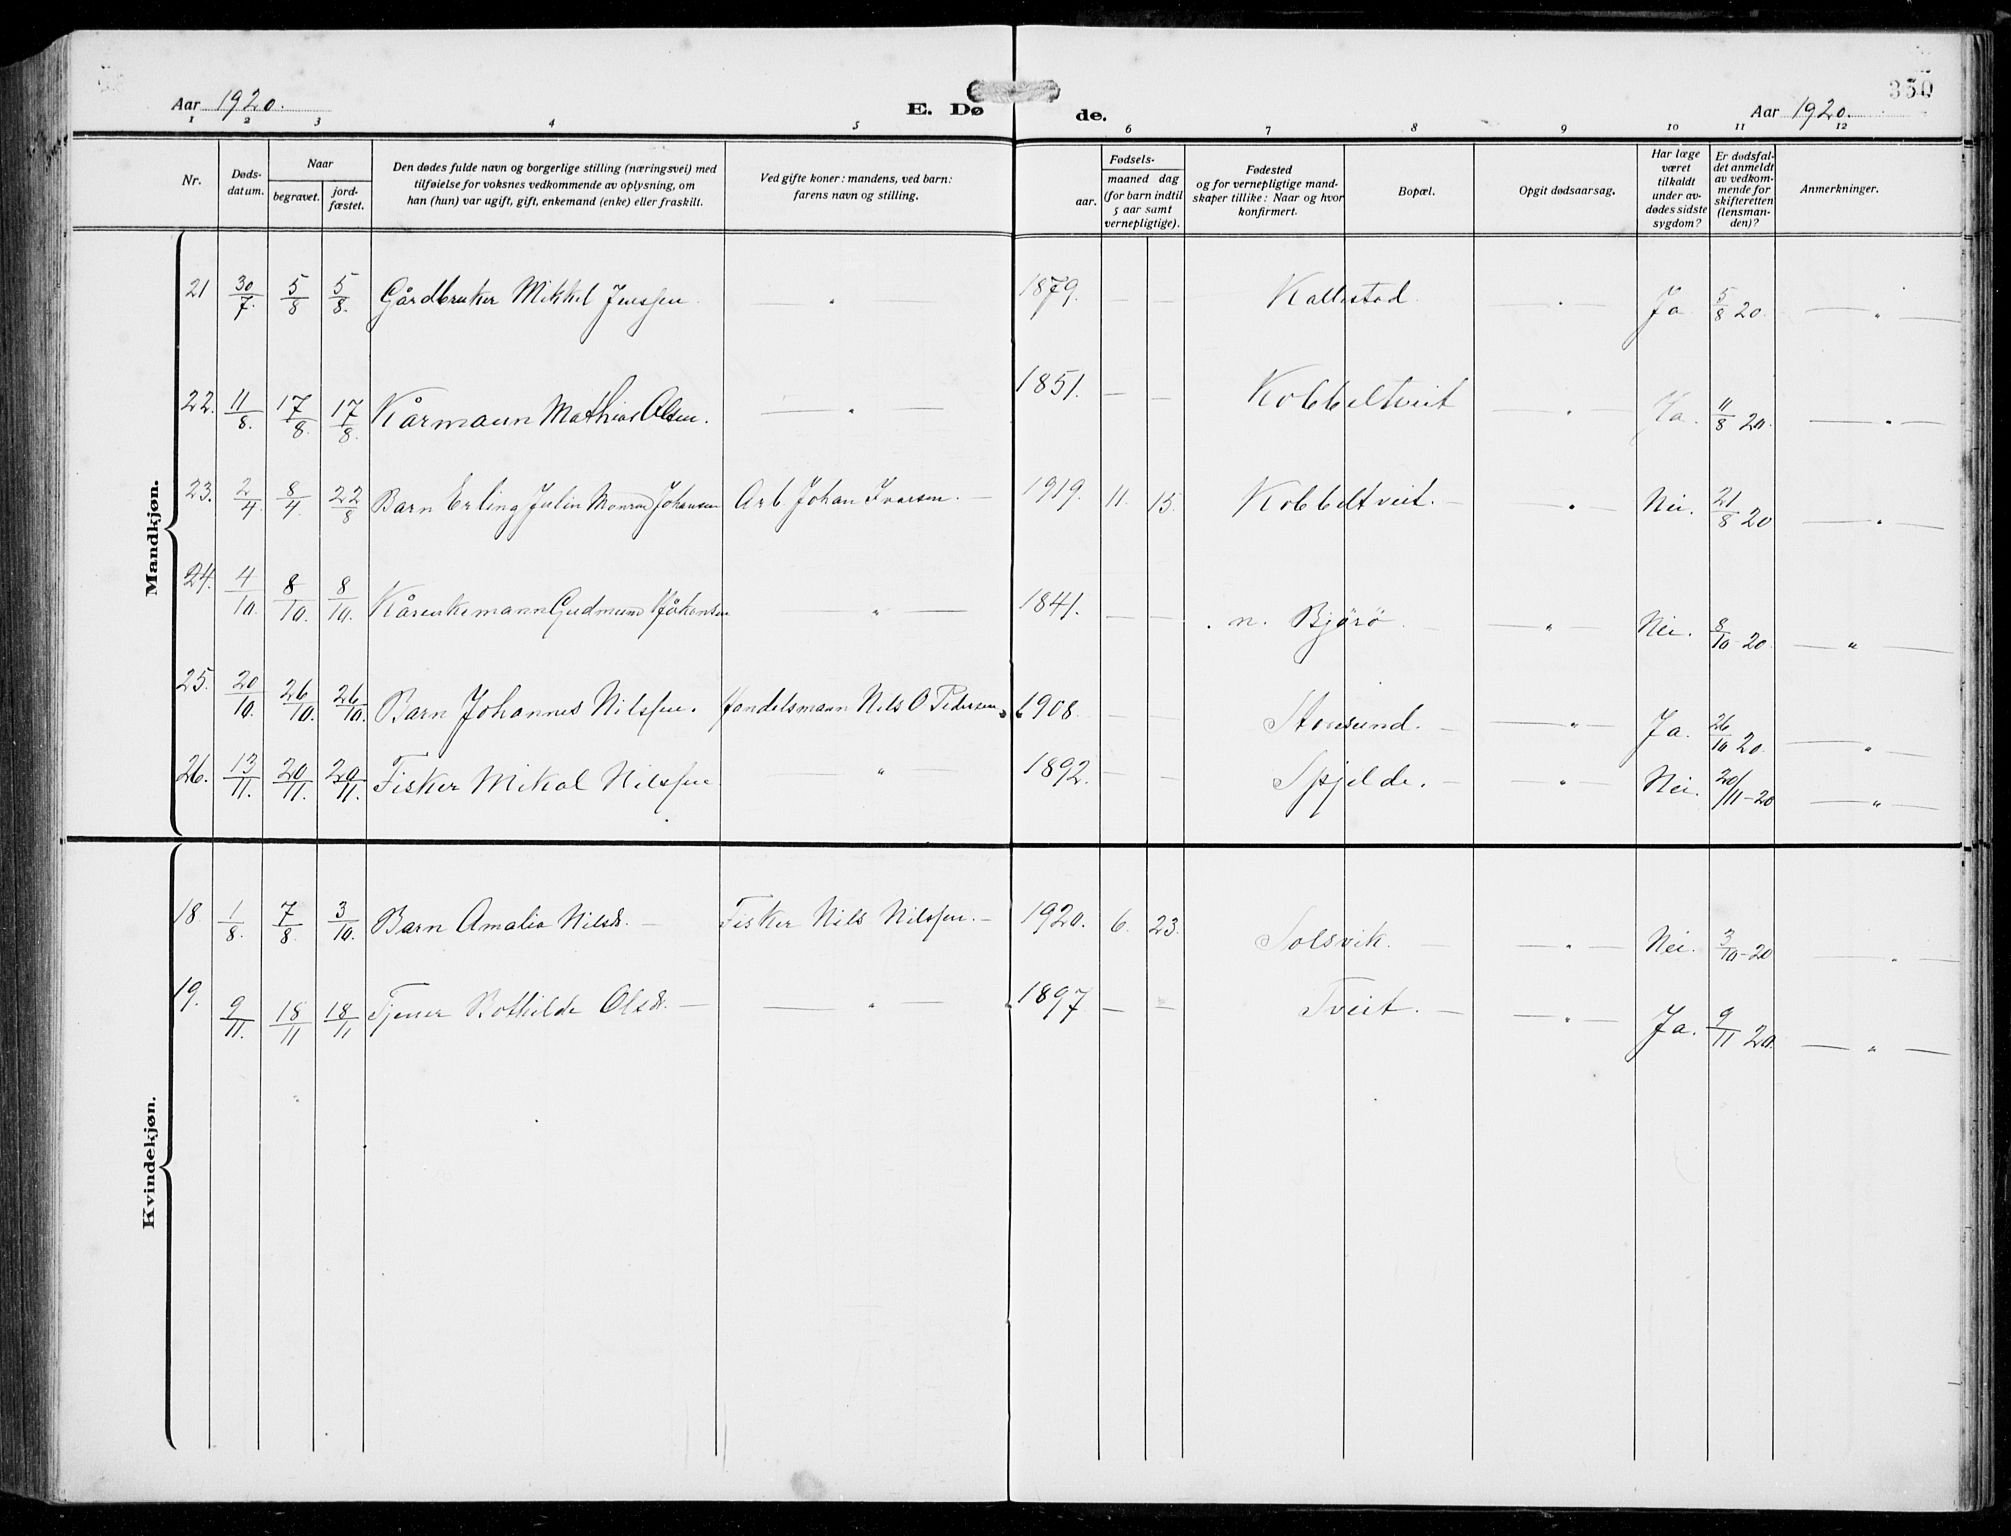 Aar 1920.
E. Døde.
Aar 1920.
350
1 2 3 4 5 6 7 8 9 10 11 12
Nr.
Døds-datum.
Naar
begravet.
jord-fæstet.
Den dødes fulde navn og borgerlige stilling (næringsvei) med
tilføielse for voksnes vedkommende av oplysning, om
han (hun) var ugift, gift, enkemand (enke) eller fraskilt.
Ved gifte koner: mandens, ved barn:
farens navn og stilling.
Fødsels-
aar.
maaned dag
(for barn indtil
5 aar samt
vernepligtige).
Fødested
og for vernepligtige mand-
skaper tillike: Naar og hvor
konfirmert.
Bopæl.
Opgit dødsaarsag.
Har læge
været
tilkaldt
under av-
dødes sidste
sygdom?
Er dødsfal-
det anmeldt
av vedkom-
mende for
skifteretten
(lensman-
den)?
Anmerkninger.
Mandkjøn.
21 30/7. 5/8 5/8. Gårdbruker Mikkel Jensen. — " 1879. — — Kallestad. — " — Ja 5/8 20. — " —
22. 11/8. 17/8. 17/8. Kårmann Mathias Olsen. — " — 1851. — — Kobbeltveit — " — Ja. 11/8 20. — " —
23. 2/4. 8/4. 22/8 Barn Erling Julin Monrad Johansen Arb. Johan Ivarsen. — 1919. 11. 15. Kobbeltveit. — — " — Nei. 21/8 20 — " —
24. 4/10. 8/10. 8/10. Kårenkemann Gudmund Johansen — " — 1841. — — n. Bjørø. — — " — Nei. 8/10-20. — " —
25. 20/10. 26/10. 26/10. Barn Johannes Nilssen. Handelsmann Nils O Pedersen. 1908. — — Stensund. — — " — Ja. 26/10 20. — " —
26. 13/11. 20/11. 20/11. Fisker Mikal Nilssen — " — 1892. — — Spjelde. — — " — Nei. 20/11-20 — " —
Kvindekjøn.
18. 1/8. 7/8. 3/10. Barn Amalia Nilsdr. — Fisker Nils Nilssen. — 1920. 6. 23. Solsvik. — — " — Nei. 3/10-20 — " —
19. 9/11. 18/11 18/11 Tjener Bothilde Olsdr. — — " — 1897. — — Tveit. — — " — Ja. 9/11 20. — " —